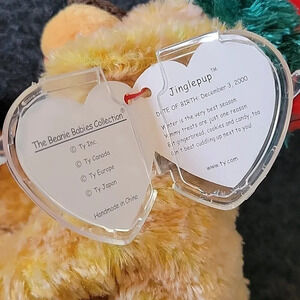 The Beanie Babies Collection®
© Ty Inc.
© Ty Canada
© Ty Europe
© Ty Japan
Handmade in China
Jinglepup™
DATE OF BIRTH: December 3, 2000
Winter is the very best season
Yummy treats are just one reason
gingerbread, cookies and candy, too
best cuddling up next to you!
www.ty.com